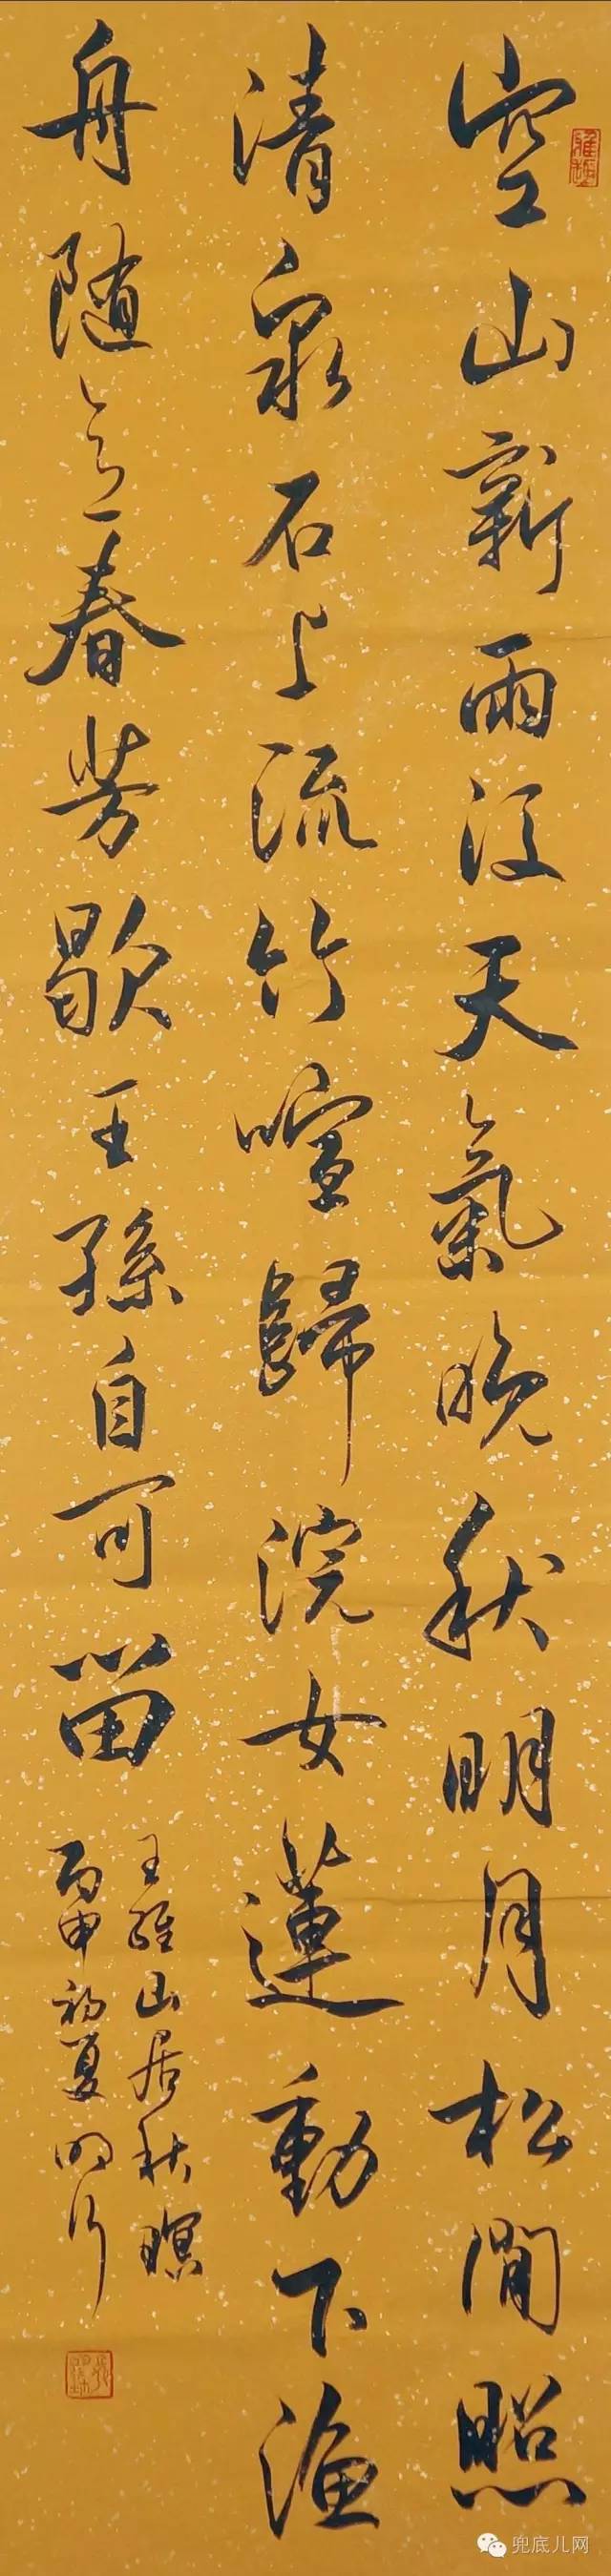 空山新雨後天氣晚秋明月松間照
清泉石上流竹喧歸浣女蓮動下漁
舟随意春芳歇王孫自可留
王維山居秋暝
丙申初夏
兜底儿网